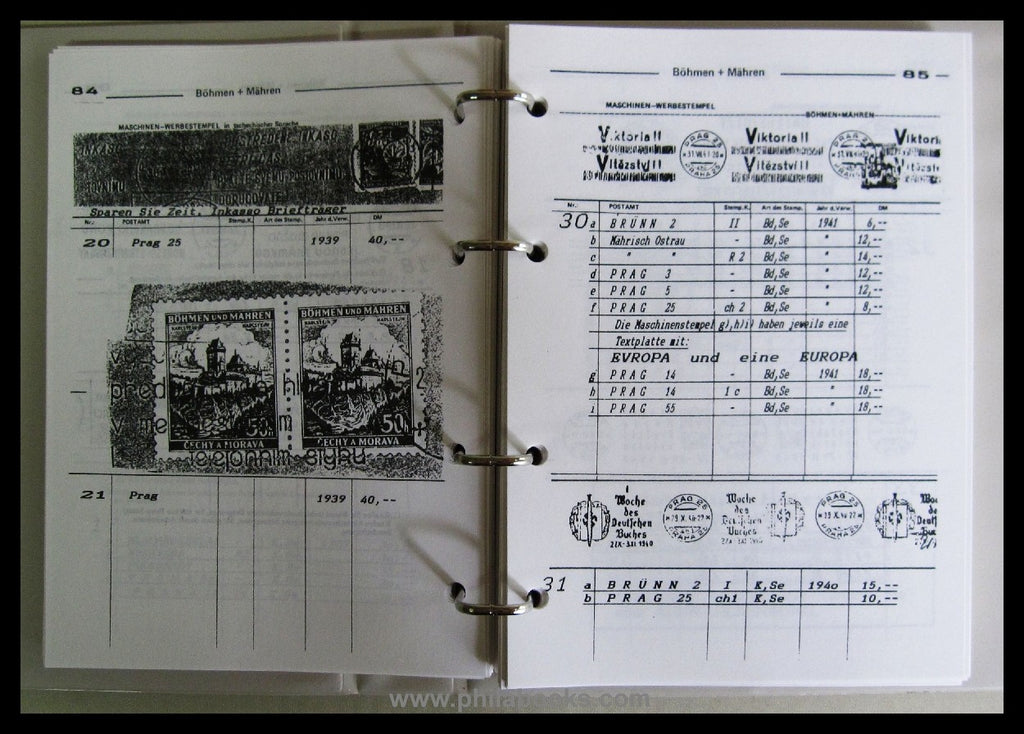 84 Böhmen + Mähren
MASCHINEN-WERBESTEMPEL in tschechischer Sprache
INKASO
DORUČOVATE
Sparen Sie Zeit. Inkasso Briefträger
Nr. POSTAMT Stemp.K. Art des Stemp. Jahr d.Verw. DM
20 Prag 25 1939 40,--
BÖHMEN UND MÄHREN BÖHMEN UND MÄHREN
KARLSTEJN KARLSTEIN
50h 50h
ČECHY A MORAVA ČECHY A MORAVA
21 Prag 1939 40,--
Böhmen + Mähren 85
MASCHINEN-WERBESTEMPEL BÖHMEN+MÄHREN
Viktoria!! PRAG 25 Viktoria!! PRAG 25 Viktori
Vítězství!! PRAHA 25 Vítězství!! Vítězst
Nr. POSTAMT Stemp.K. Art des Stemp. Jahr d.Verw. DM
30 a BRÜNN 2 II Bd,Se 1941 6,--
b Mährisch Ostrau - Bd,Se " 12,--
c " " R 2 Bd,Se " 14,--
d PRAG 3 - Bd,Se " 12,--
e PRAG 5 - Bd,Se " 12,--
f PRAG 25 ch 2 Bd,Se " 8,--
Die Maschinenstempel g),h)i) haben jeweils eine
Textplatte mit:
EVROPA und eine EUROPA
g PRAG 14 - Bd,Se 1941 18,--
h PRAG 14 1 c Bd,Se " 18,--
i PRAG 55 - Bd,Se " 18,--
Woche PRAG 25 Woche PRAG 25 Wo
des des de
Deutschen Deutschen Deut
Buches PRAHA 25 Buches PRAHA 25 Buc
27.X.-3.XI 1940
31 a BRÜNN 2 I K,Se 194o 15,--
b PRAG 25 ch1 K,Se 10,--
www.philabooks.com